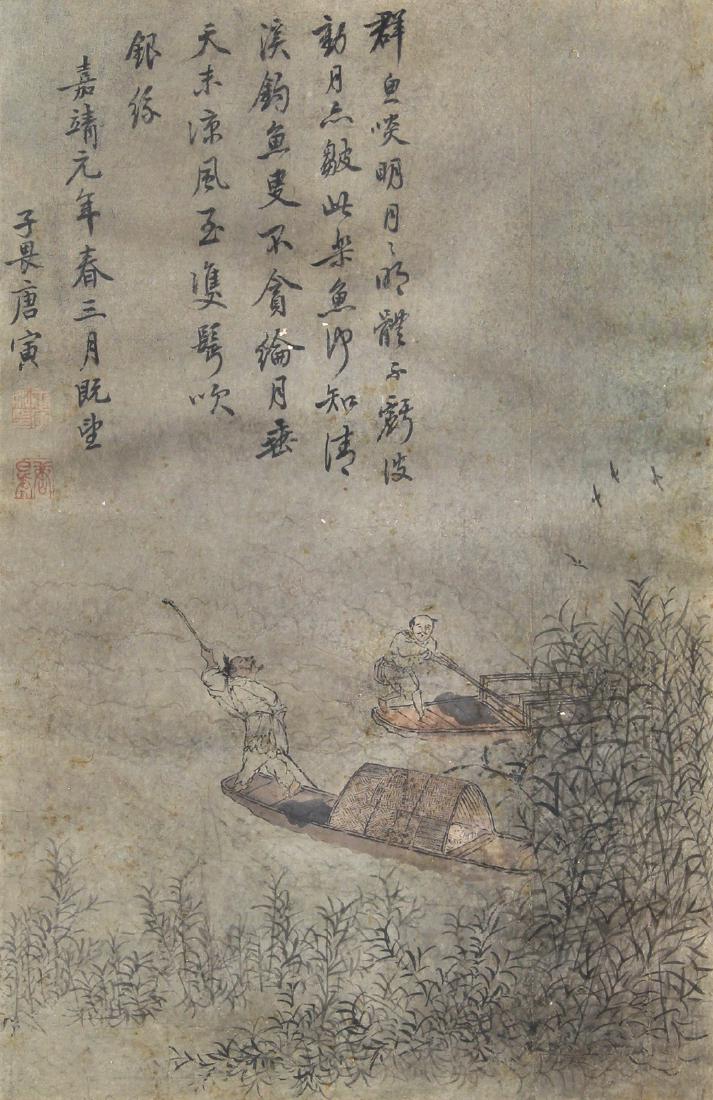 群魚啖明月々明體不虧波
動月亦皺此樂魚知清
溪釣魚叟不貪綸月垂
天末凉風至雙鬢吹
銀絲
嘉靖元年春三月既望
子畏唐寅